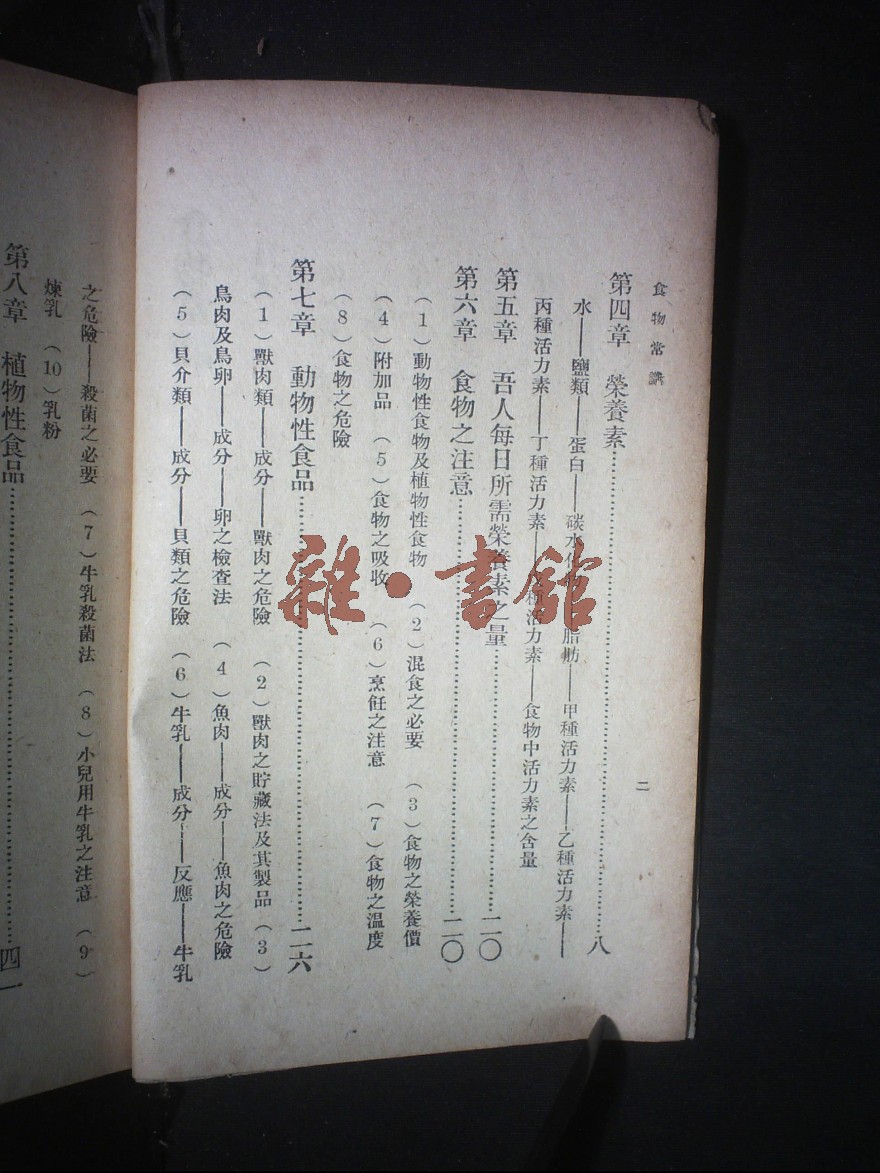 食物常識
二
第四章 榮養素……………八
水——鹽類——蛋白——碳水化物——脂肪——甲種活力素——乙種活力素——
丙種活力素——丁種活力素——種活力素——食物中活力素之含量
第五章 吾人每日所需榮養素之量……………二〇
第六章 食物之注意……………二〇
（1）動物性食物及植物性食物 （2）混食之必要 （3）食物之榮養價
（4）附加品 （5）食物之吸收 （6）烹飪之注意 （7）食物之溫度
（8）食物之危險
第七章 動物性食品……………二六
（1）獸肉類——成分——獸肉之危險 （2）獸肉之貯藏法及其製品 （3）
鳥肉及鳥卵——成分——卵之檢查法 （4）魚肉——成分——魚肉之危險
（5）貝介類——成分——貝類之危險 （6）牛乳——成分——反應——牛乳
之危險——殺菌之必要 （7）牛乳殺菌法 （8）小兒用牛乳之注意 （9）
煉乳 （10）乳粉
第八章 植物性食品……………四一
雜·書館